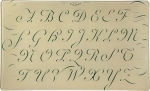 A B C D E E F
F G H I J H L M
N O P Q R S T
T U V W X Y Z